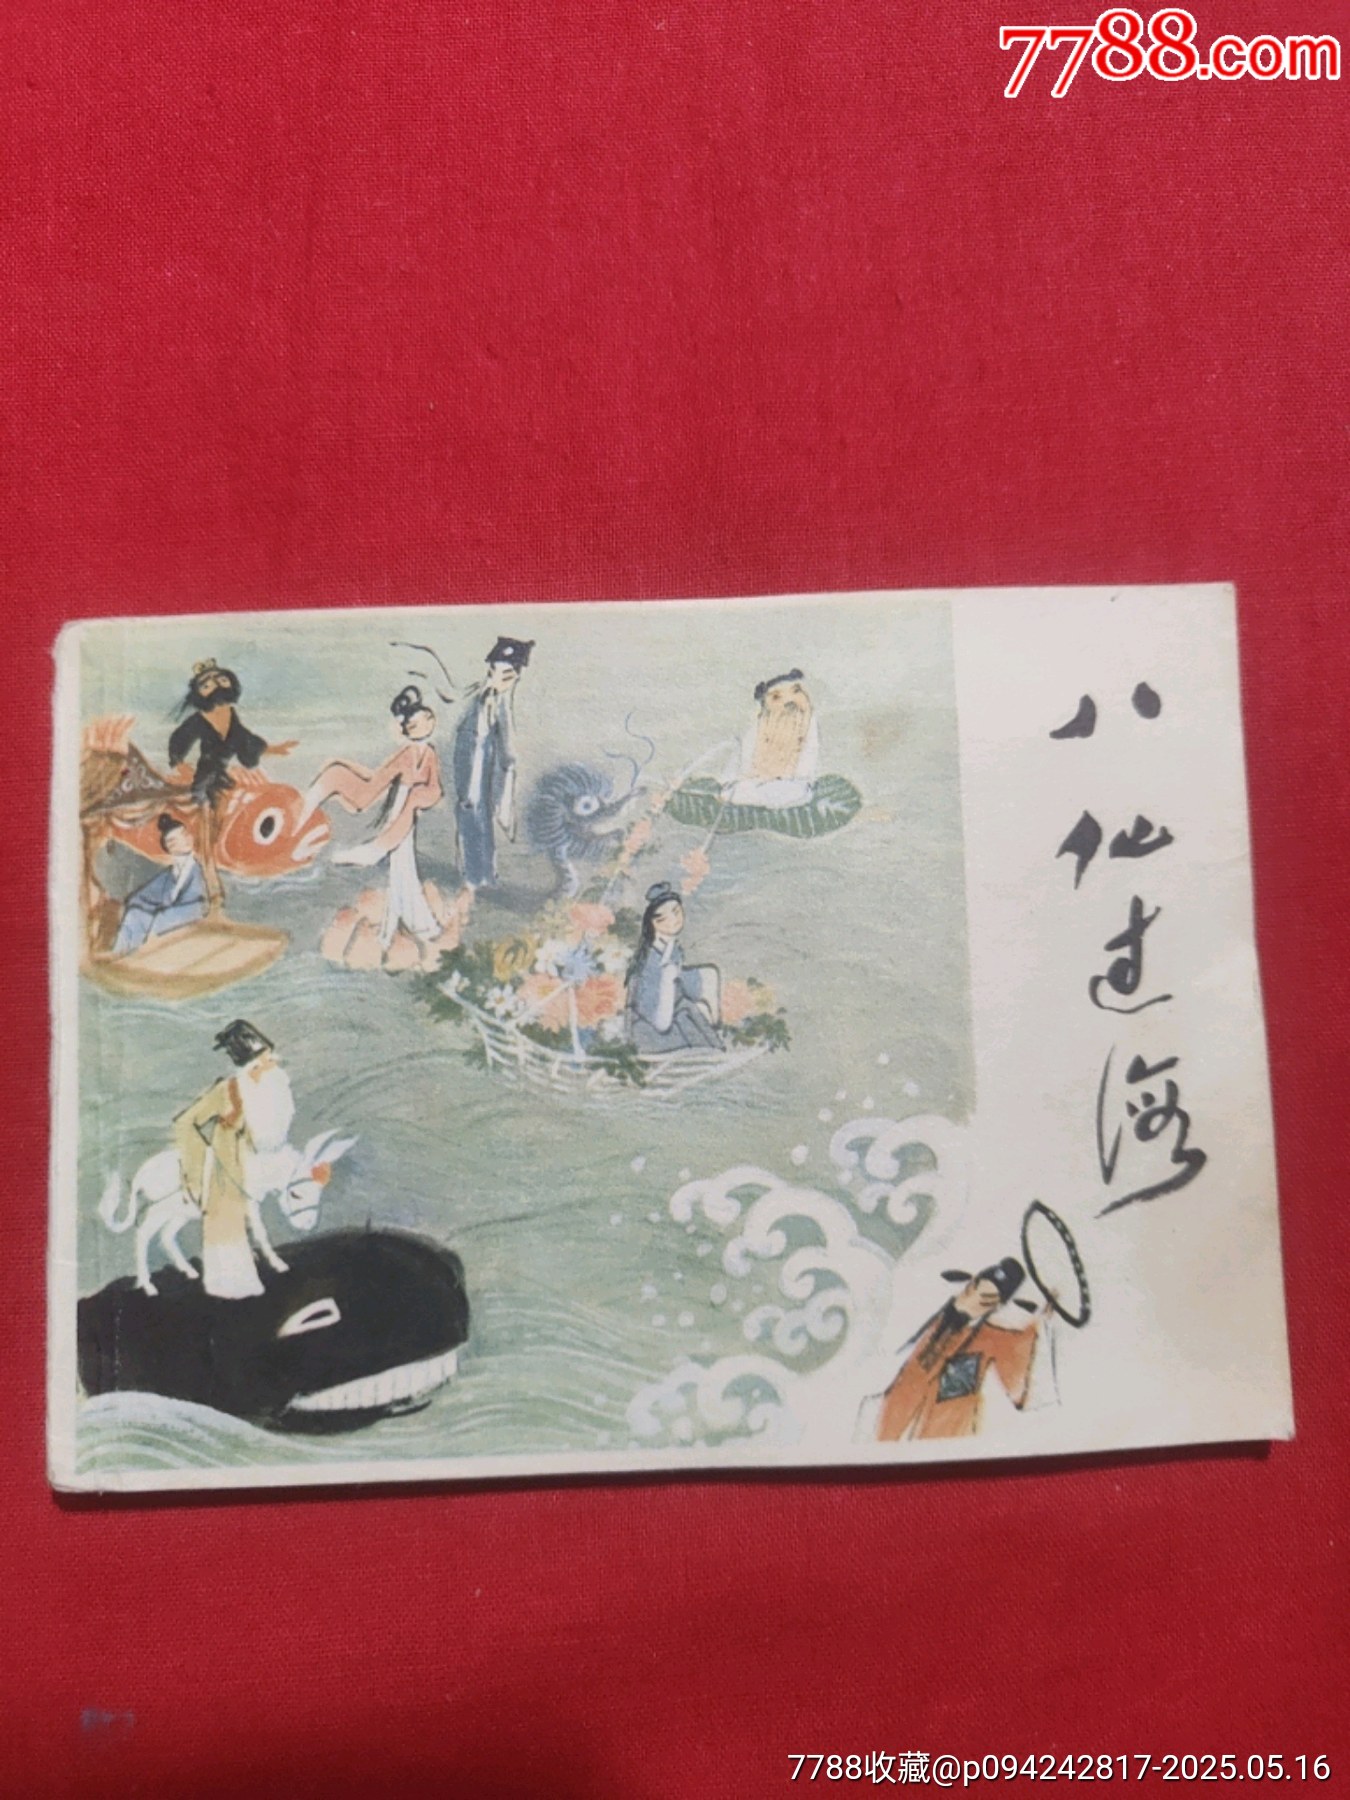 7788.com
八仙过海
7788收藏@p094242817-2025.05.16